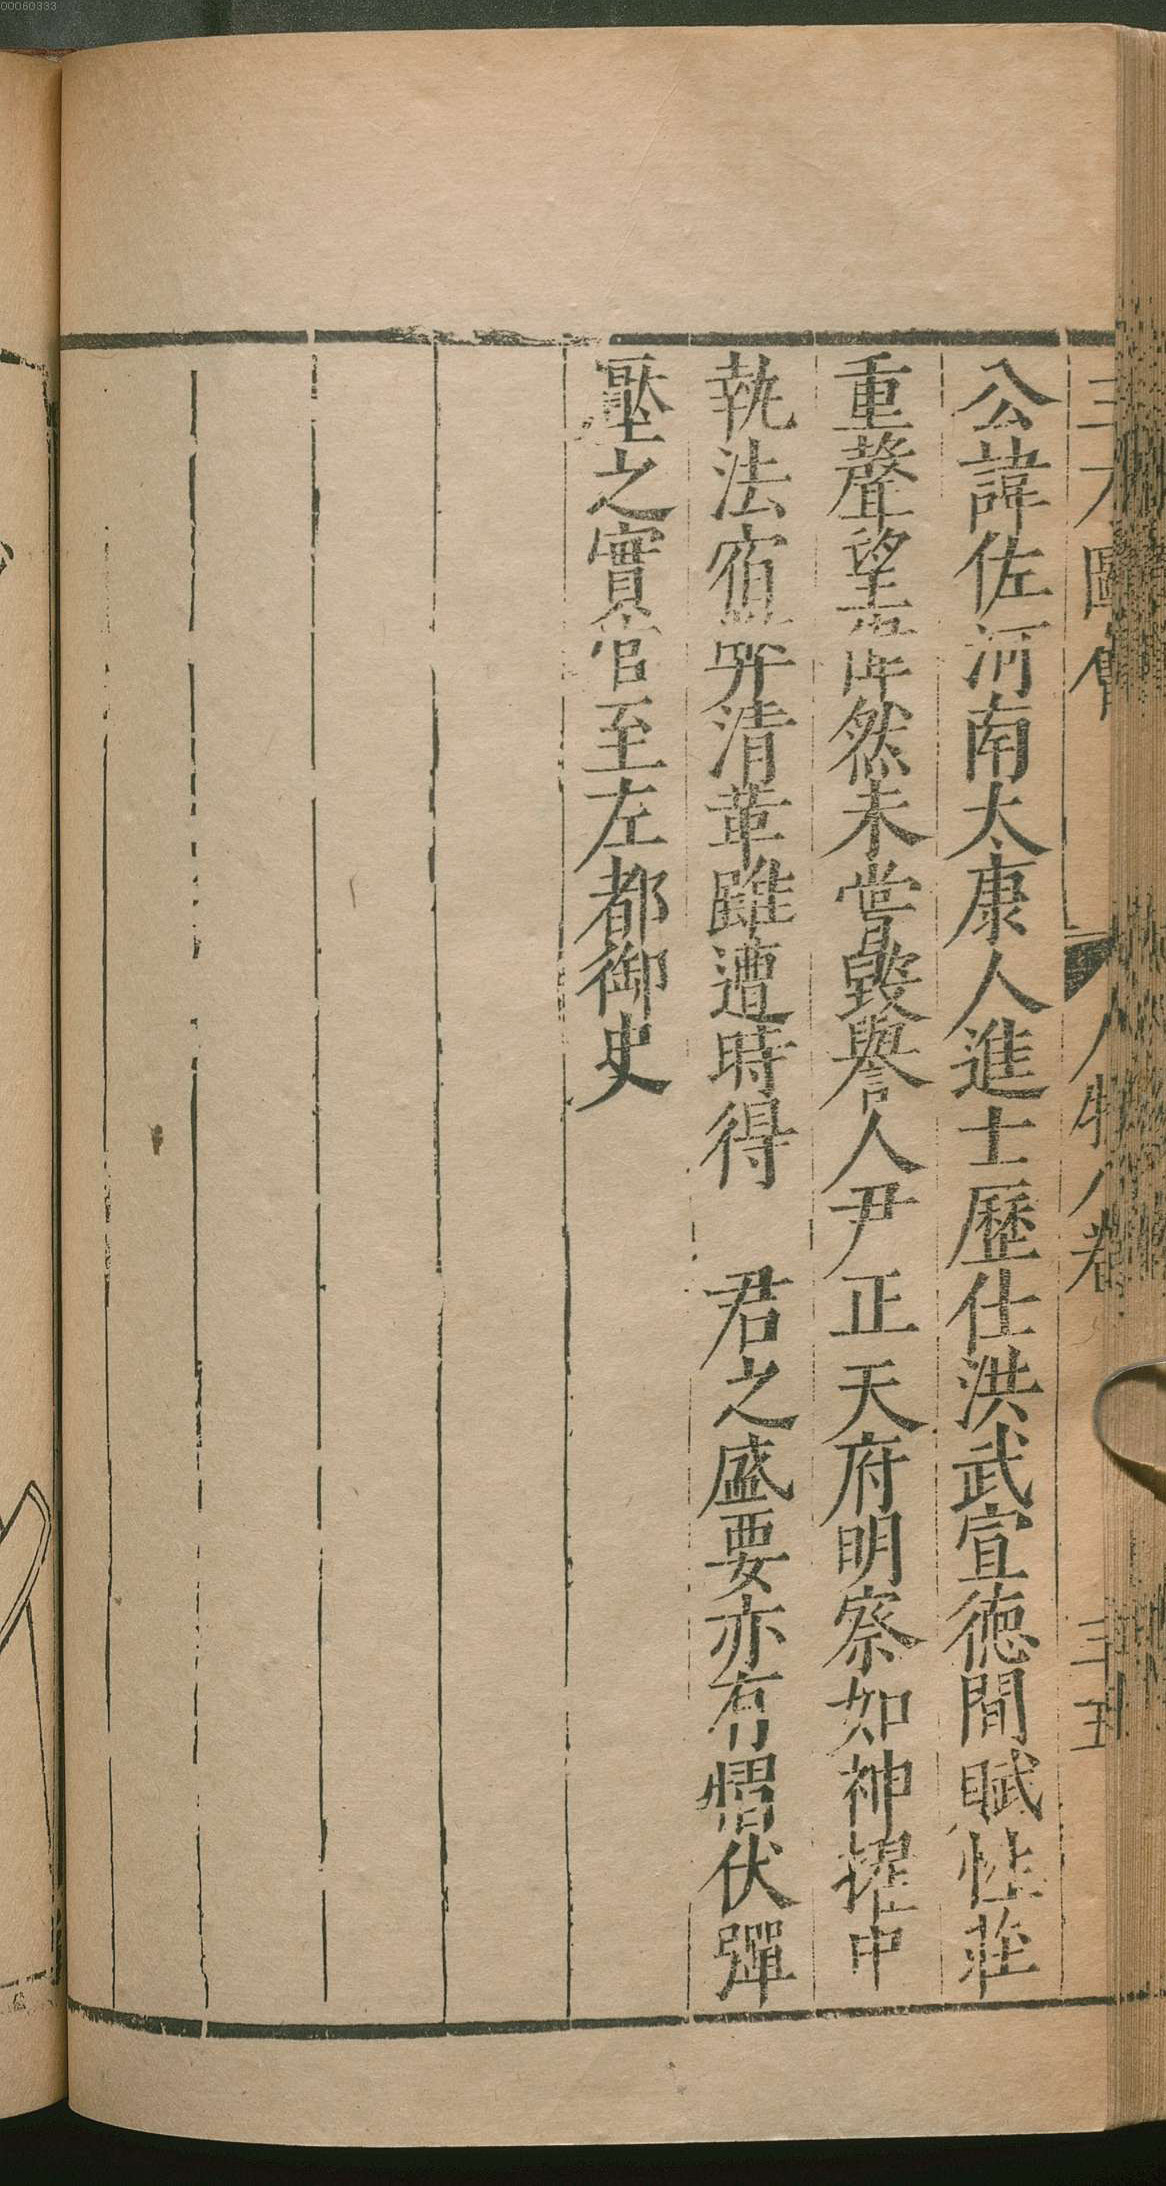 00060333
三才圖會 人物八卷 三十五
公諱佐河南太康人進士歷仕洪武宣德間賦性莊
重聲望然未嘗毀譽人尹正天府明察如神擢中
執法宿弊清革雖遭時得 君之盛要亦有慴伏彈
壓之實官至左都御史